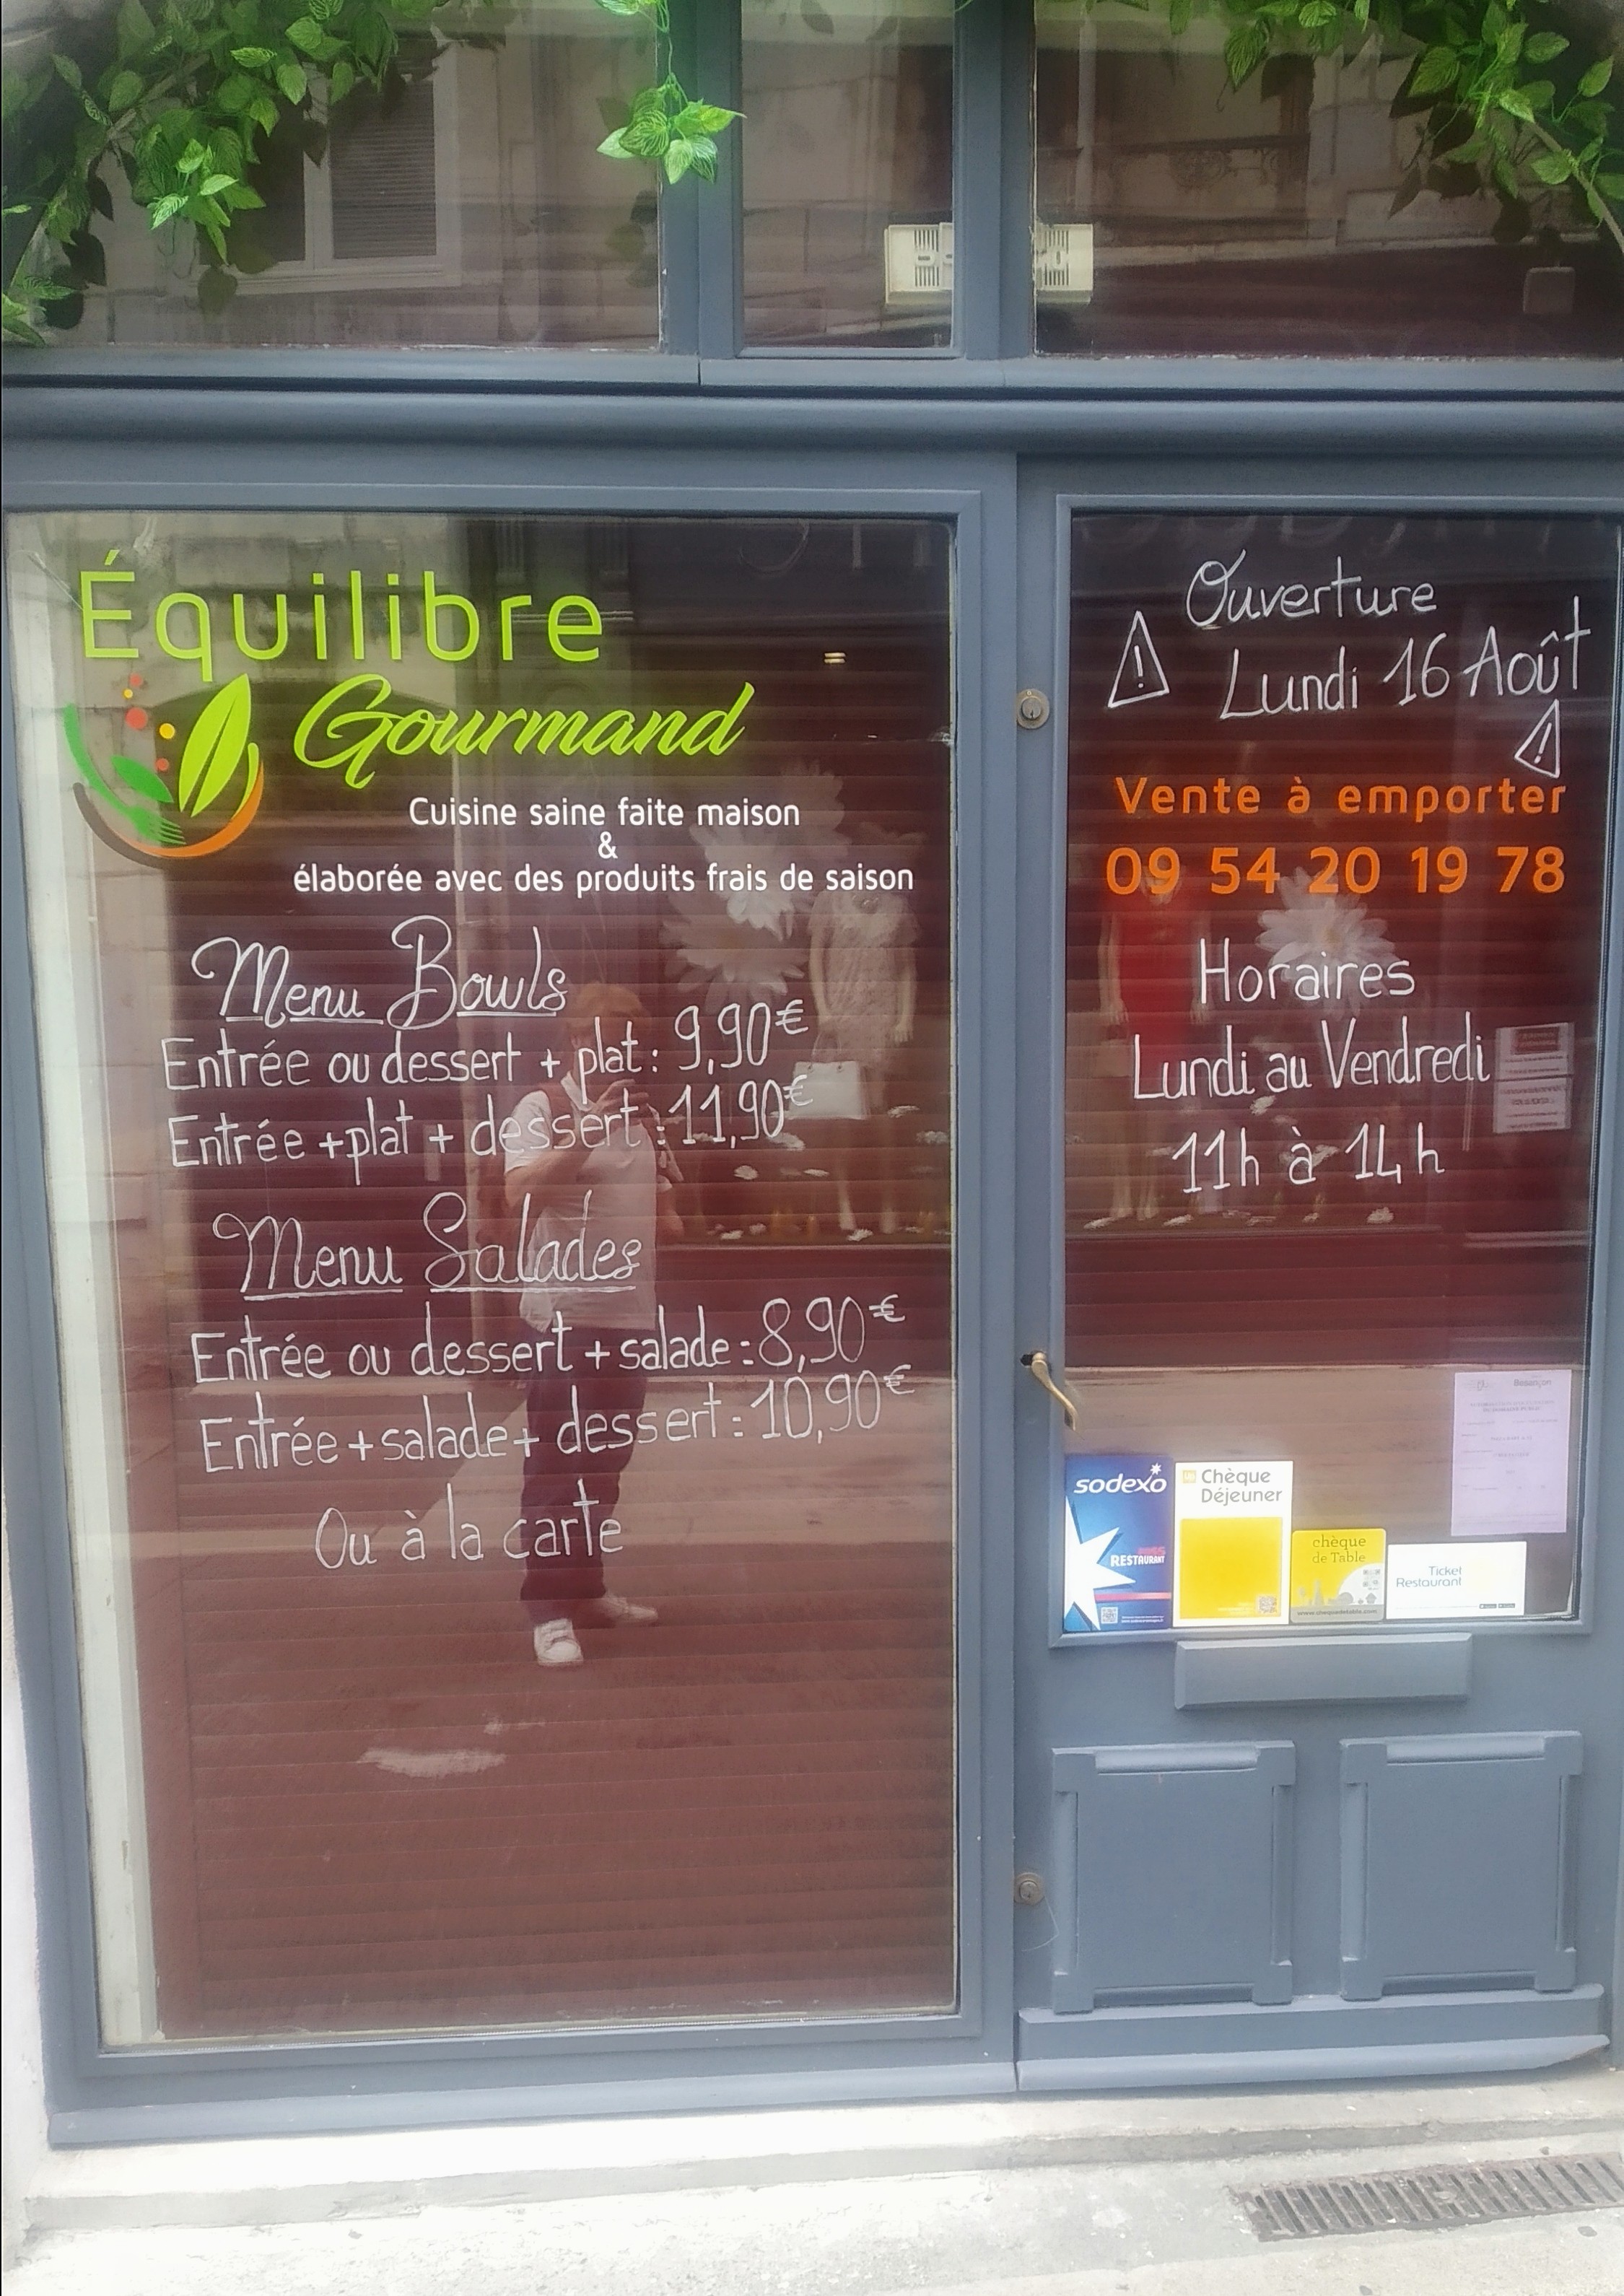 Équilibre
Gourmand
Cuisine saine faite maison
&
élaborée avec des produits frais de saison
Menu Bowls
Entrée ou dessert + plat : 9,90€
Entrée + plat + dessert : 11,90€
Menu Salades
Entrée ou dessert + salade : 8,90€
Entrée + salade + dessert : 10,90€
Ou à la carte
Ouverture
Lundi 16 Août
Vente à emporter
09 54 20 19 78
Horaires
Lundi au Vendredi
11h à 14h
Besançon
sodexo
PASS
RESTAURANT
Chèque
Déjeuner
chèque
de Table
www.chequedetable.com
Ticket
Restaurant